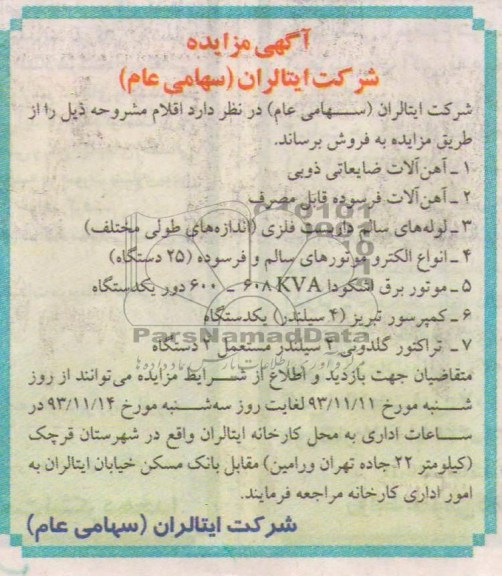 آگهی مزایده
شرکت ایتالران (سهامی عام)
شرکت ایتالران (سهامی عام) در نظر دارد اقلام مشروحه ذیل را از
طریق مزایده به فروش برساند.
۱ ـ آهن‌آلات ضایعاتی ذوبی
۲ ـ آهن‌آلات فرسوده قابل مصرف
۳ ـ لوله‌های سالم داربست فلزی (اندازه‌های طولی مختلف)
۴ ـ انواع الکترو موتورهای سالم و فرسوده (۲۵ دستگاه)
۵ ـ موتور برق اشکودا ۶۰۸ KVA ـ ۶۰۰ دور یکدستگاه
۶ ـ کمپرسور تبریز (۴ سیلندر) یکدستگاه
۷ ـ تراکتور گلدونی ۳ سیلندر مستعمل ۲ دستگاه
متقاضیان جهت بازدید و اطلاع از شرایط مزایده می‌توانند از روز
شنبه مورخ ۹۳/۱۱/۱۱ لغایت روز سه‌شنبه مورخ ۹۳/۱۱/۱۴ در
ساعات اداری به محل کارخانه ایتالران واقع در شهرستان قرچک
(کیلومتر ۲۲ جاده تهران ورامین) مقابل بانک مسکن خیابان ایتالران به
امور اداری کارخانه مراجعه فرمایند.
شرکت ایتالران (سهامی عام)
ParsNamadData